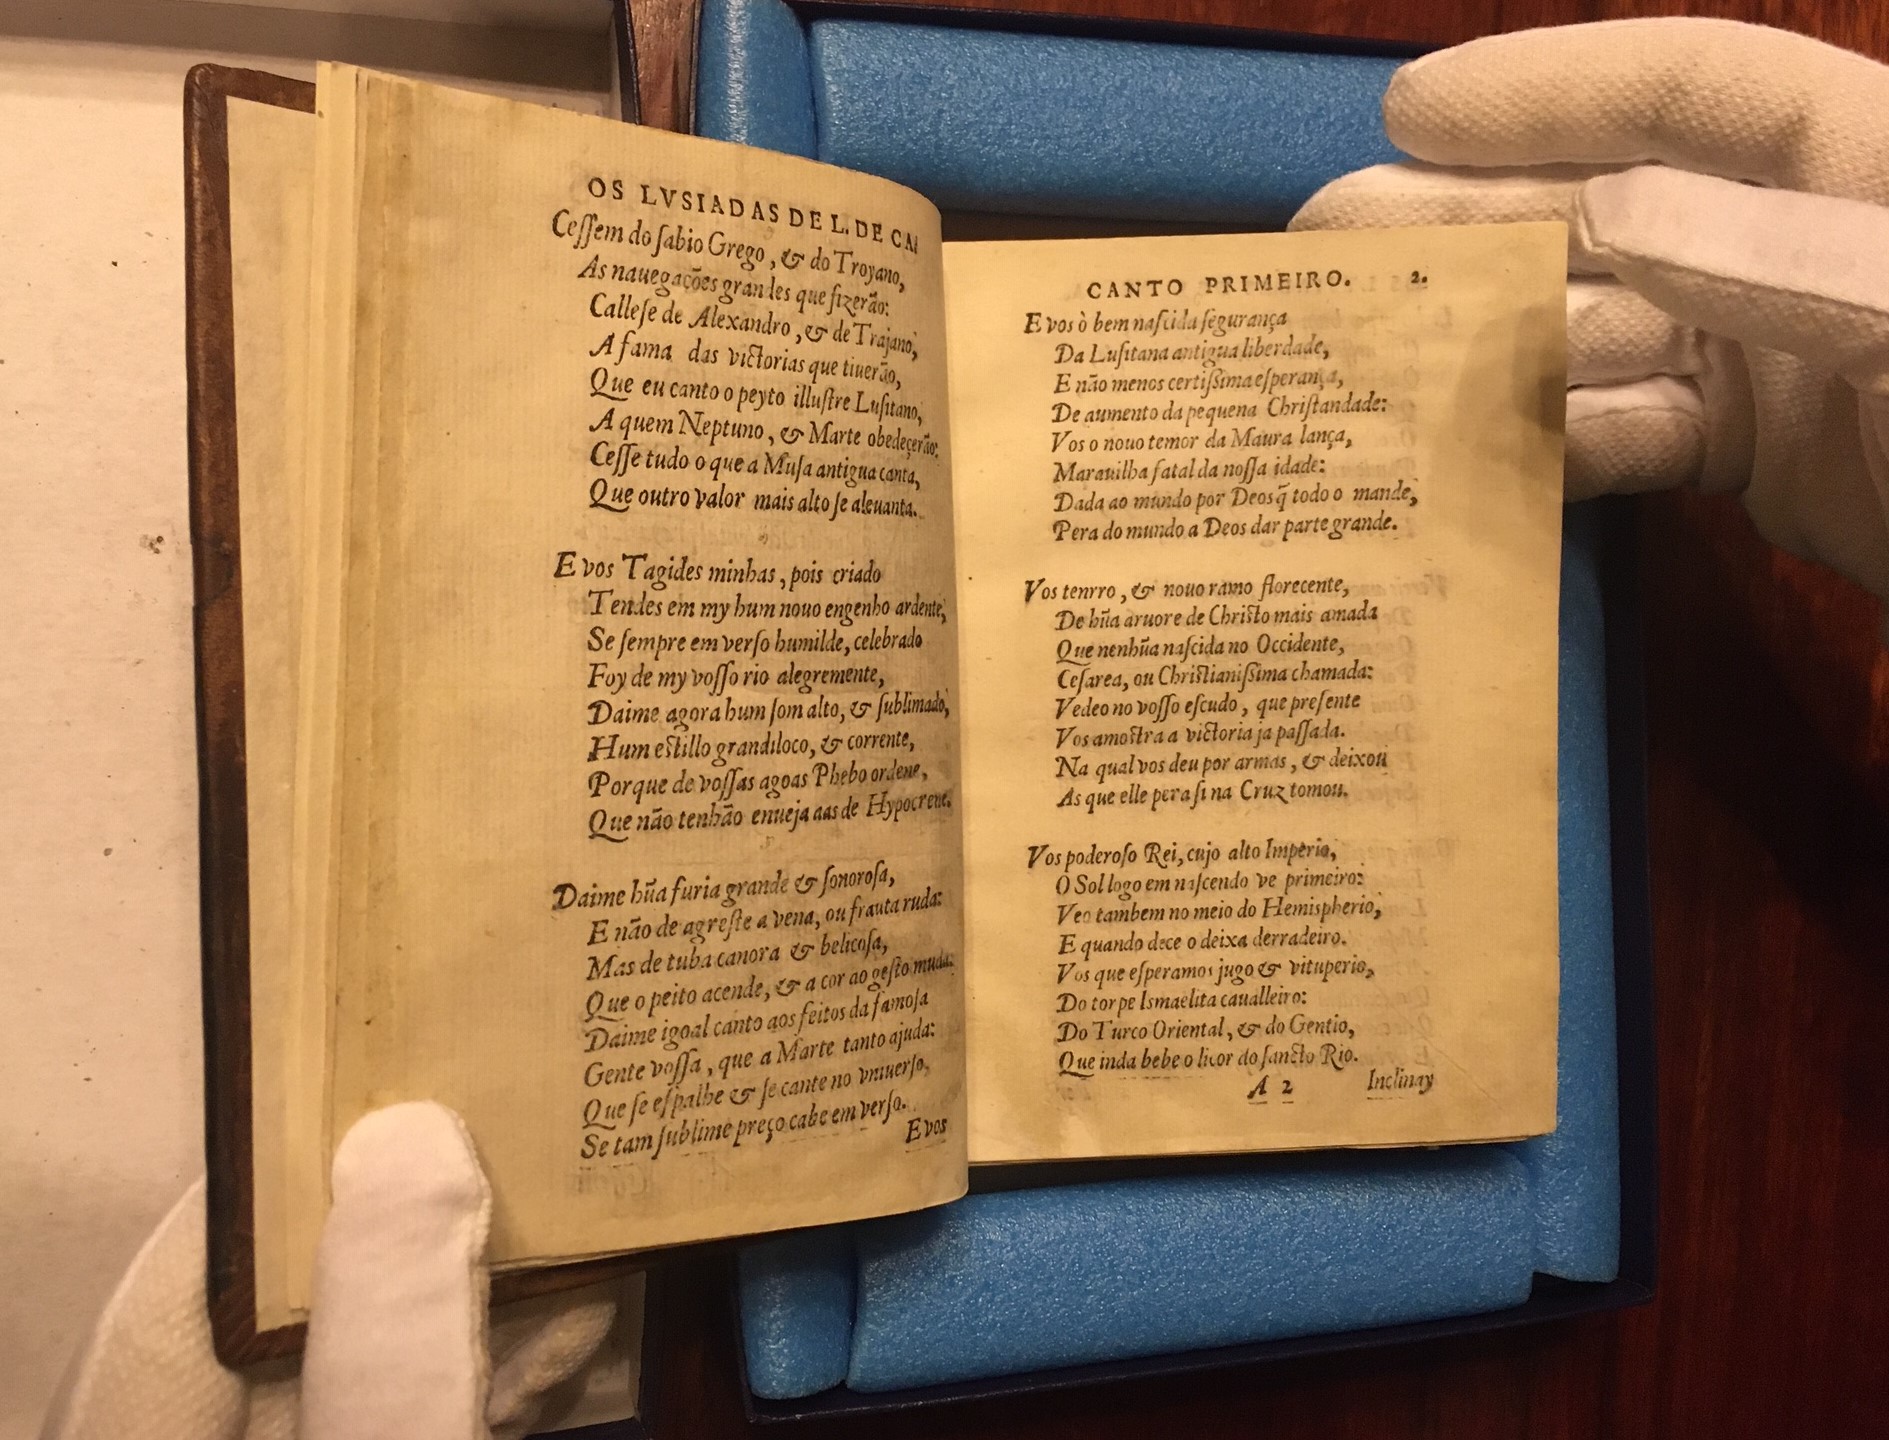 OS LVSIADAS DE L. DE CA
Ceſſem do ſabio Grego, & do Troyano,
As nauegações grandes que fizerão:
Calleſe de Alexandro, & de Trajano,
A fama das victorias que tiuerão,
Que eu canto o peyto illuſtre Luſitano,
A quem Neptuno, & Marte obedeçerão:
Ceſſe tudo o que a Muſa antigua canta,
Que outro valor mais alto ſe aleuanta.
E vos Tagides minhas, pois criado
Tendes em my hum nouo engenho ardente,
Se ſempre em verſo humilde, celebrado
Foy de my voſſo rio alegremente,
Daime agora hum ſom alto, & ſublimado,
Hum eſtillo grandiloco, & corrente,
Porque de voſſas agoas Phebo ordene,
Que não tenhão enueja aas de Hypocrene.
Daime hũa furia grande & ſonoroſa,
E não de agreſte a vena, ou frauta ruda:
Mas de tuba canora & belicoſa,
Que o peito acende, & a cor ao geſto muda:
Daime igoal canto aos feitos da famoſa
Gente voſſa, que a Marte tanto ajuda:
Que ſe eſpalhe & ſe cante no vniuerſo,
Se tam ſublime preço cabe em verſo.
E vos
CANTO PRIMEIRO. 2.
E vos ò bem naſcida ſegurança
Da Luſitana antigua liberdade,
E não menos certiſſima eſperança,
De aumento da pequena Chriſtandade:
Vos o nouo temor da Maura lança,
Marauilha fatal da noſſa idade:
Dada ao mundo por Deos q̃ todo o mande,
Pera do mundo a Deos dar parte grande.
Vos tenrro, & nouo ramo florecente,
De hũa aruore de Chriſto mais amada
Que nenhũa naſcida no Occidente,
Ceſarea, ou Chriſtianiſſima chamada:
Vedeo no voſſo eſcudo, que preſente
Vos amoſtra a victoria ja paſſada.
Na qual vos deu por armas, & deixou
As que elle pera ſi na Cruz tomou.
Vos poderoſo Rei, cujo alto Imperio,
O Sol logo em naſcendo ve primeiro:
Veo tambem no meio do Hemiſpherio,
E quando dece o deixa derradeiro.
Vos que eſperamos jugo & vituperio,
Do torpe Iſmaelita caualleiro:
Do Turco Oriental, & do Gentio,
Que inda bebe o licor do ſancto Rio.
A 2 Inclinay